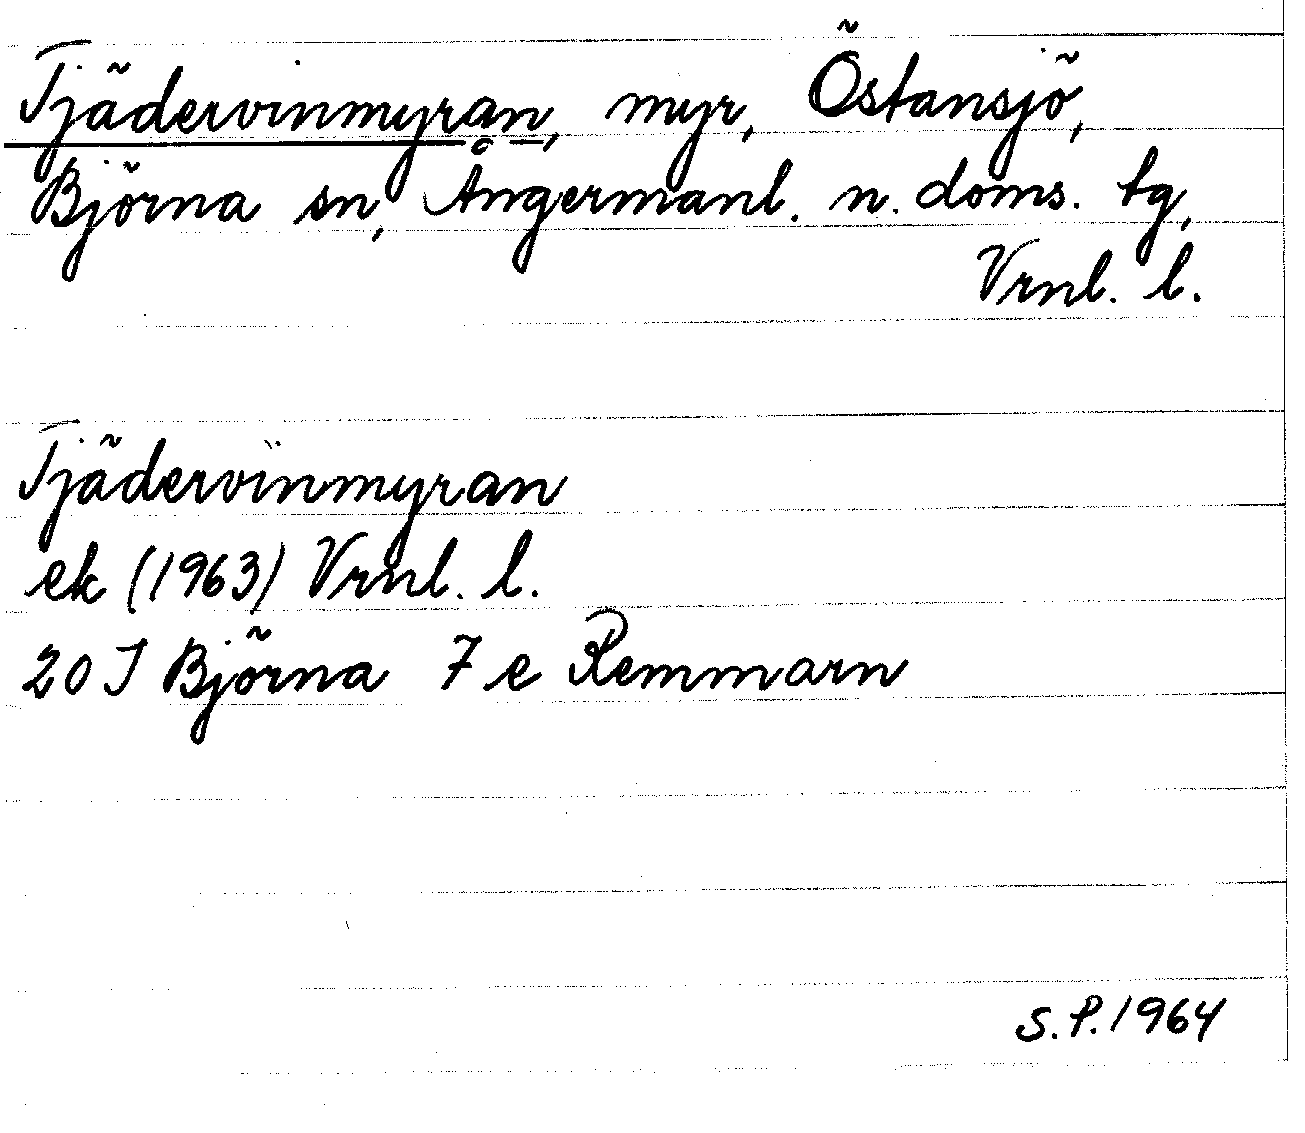 Tjädervinmyran, myr, Östansjö,
Björna sn, Ångermanl. n. doms. tg,
Vrnl. l.
Tjädervinmyran
ek (1963) Vrnl. l.
20 J Björna 7 e Remmarn
S.P. 1964